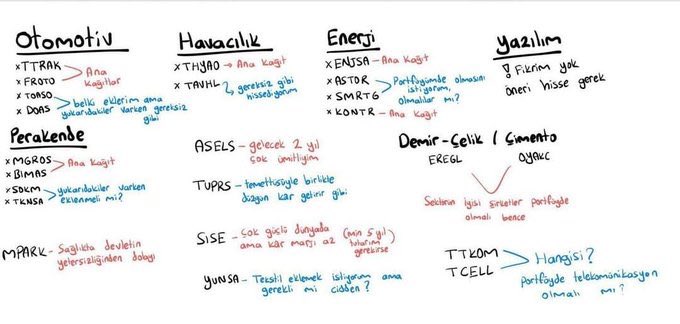 Otomotiv
x TTRAK
x FROTO
Ana
kağıtlar
x TOASO
x DOAS
belki eklerim ama
yukarıdakiler varken gereksiz
gibi
Havacılık
x THYAO → Ana kağıt
x TAVHL
gereksiz gibi
hissediyorum
Enerji
x ENJSA - Ana kağıt
x ASTOR
x SMRTG
Portföyümde olmasını
istiyorum,
olmalılar mı?
x KONTR - Ana kağıt
Yazılım
! Fikrim yok
öneri hisse gerek
Perakende
x MGROS
x BIMAS
Ana kağıt
x SOKM
x TKNSA
yukarıdakiler varken
eklenmeli mi?
MPARK - Sağlıkta devletin
yetersizliğinden dolayı
ASELS - gelecek 2 yıl
çok ümitliyim
TUPRS - temettüsüyle birlikte
düzgün kar getirir gibi
SISE - Çok güçlü dünyada
ama kar marjı az
(min 5 yıl
tutarım
gerekirse)
YUNSA - Tekstil eklemek istiyorum ama
gerekli mi cidden?
Demir-Çelik / Çimento
EREGL
OYAKC
Sektörün iyisi şirketler portföyde
olmalı bence
TTKOM
TCELL
Hangisi?
Portföyde telekomünikasyon
olmalı mı?